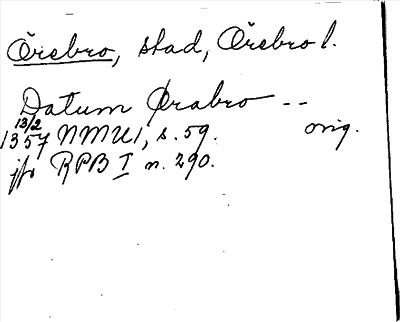 Örebro, stad, Örebro l.
Datum Ørabro --
13/2
1357 NMU1, s. 59. orig.
jfr RPB I n. 290.